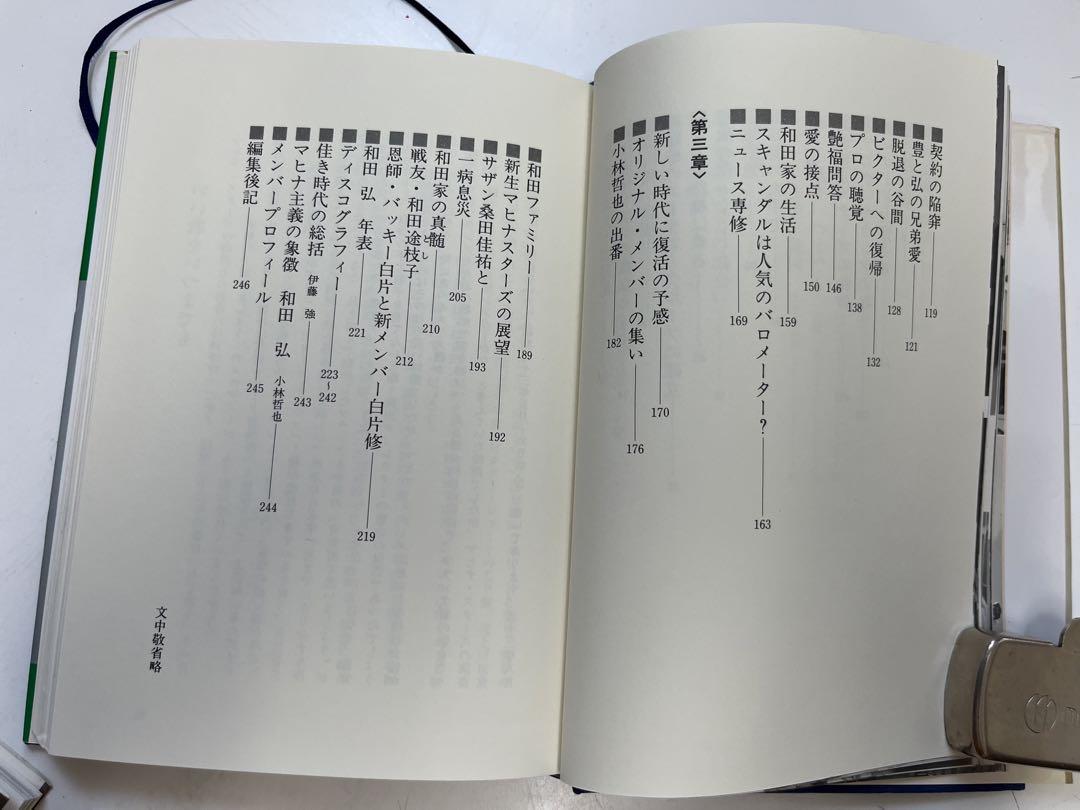 ■契約の陥穽――119
■豊と弘の兄弟愛――121
■脱退の谷間――128
■ビクターへの復帰――132
■プロの聴覚――138
■艶福問答――146
■愛の接点――150
■和田家の生活――159
■スキャンダルは人気のバロメーター?――163
■ニュース専修――169
〈第三章〉
■新しい時代に復活の予感――170
■オリジナル・メンバーの集い――176
■小林哲也の出番――182
■和田ファミリー――189
■新生マヒナスターズの展望――192
■サザン桑田佳祐と――193
■一病息災――205
■和田家の真髄――210
■戦友・和田途枝子――212
とし
■恩師・バッキー白片と新メンバー白片修――219
■和田 弘 年表――221
■ディスコグラフィー――223〜242
■佳き時代の総括 伊藤 強――243
■マヒナ主義の象徴 和田 弘 小林哲也――244
■メンバープロフィール――245
■編集後記――246
文中敬省略